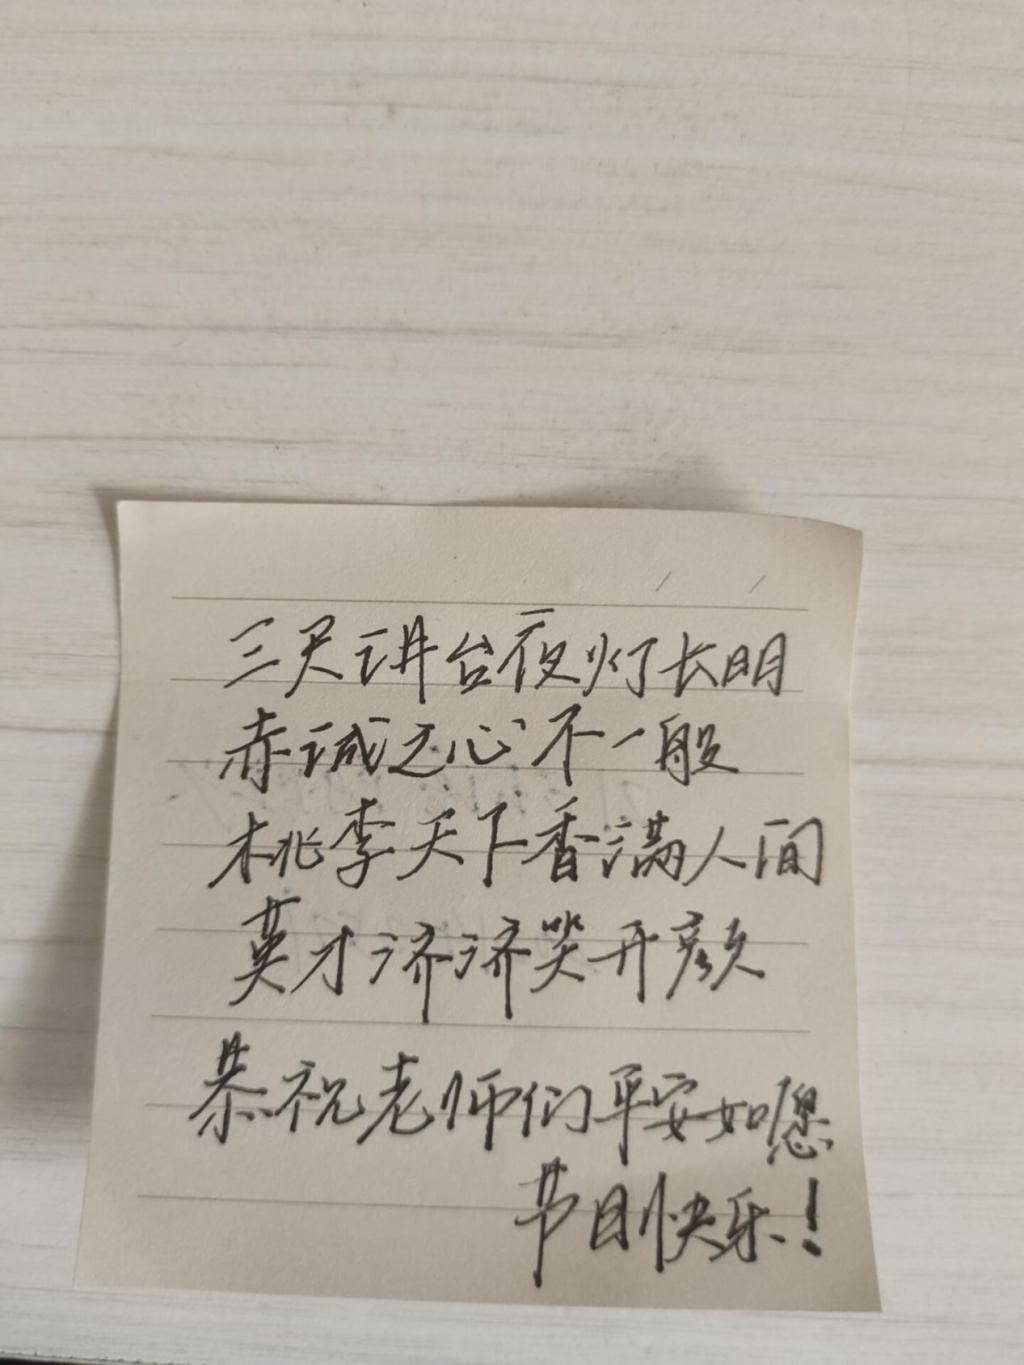 三尺讲台夜灯长明
赤诚之心不一般
桃李天下香满人间
英才济济笑开颜
恭祝老师们平安如愿
节日快乐!